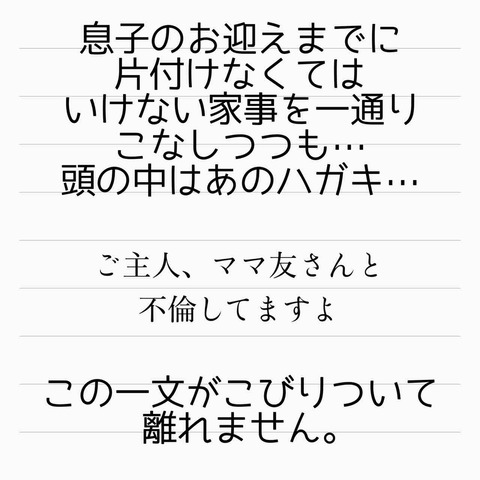 息子のお迎えまでに
片付けなくては
いけない家事を一通り
こなしつつも…
頭の中はあのハガキ…
ご主人、ママ友さんと
不倫してますよ
この一文がこびりついて
離れません。